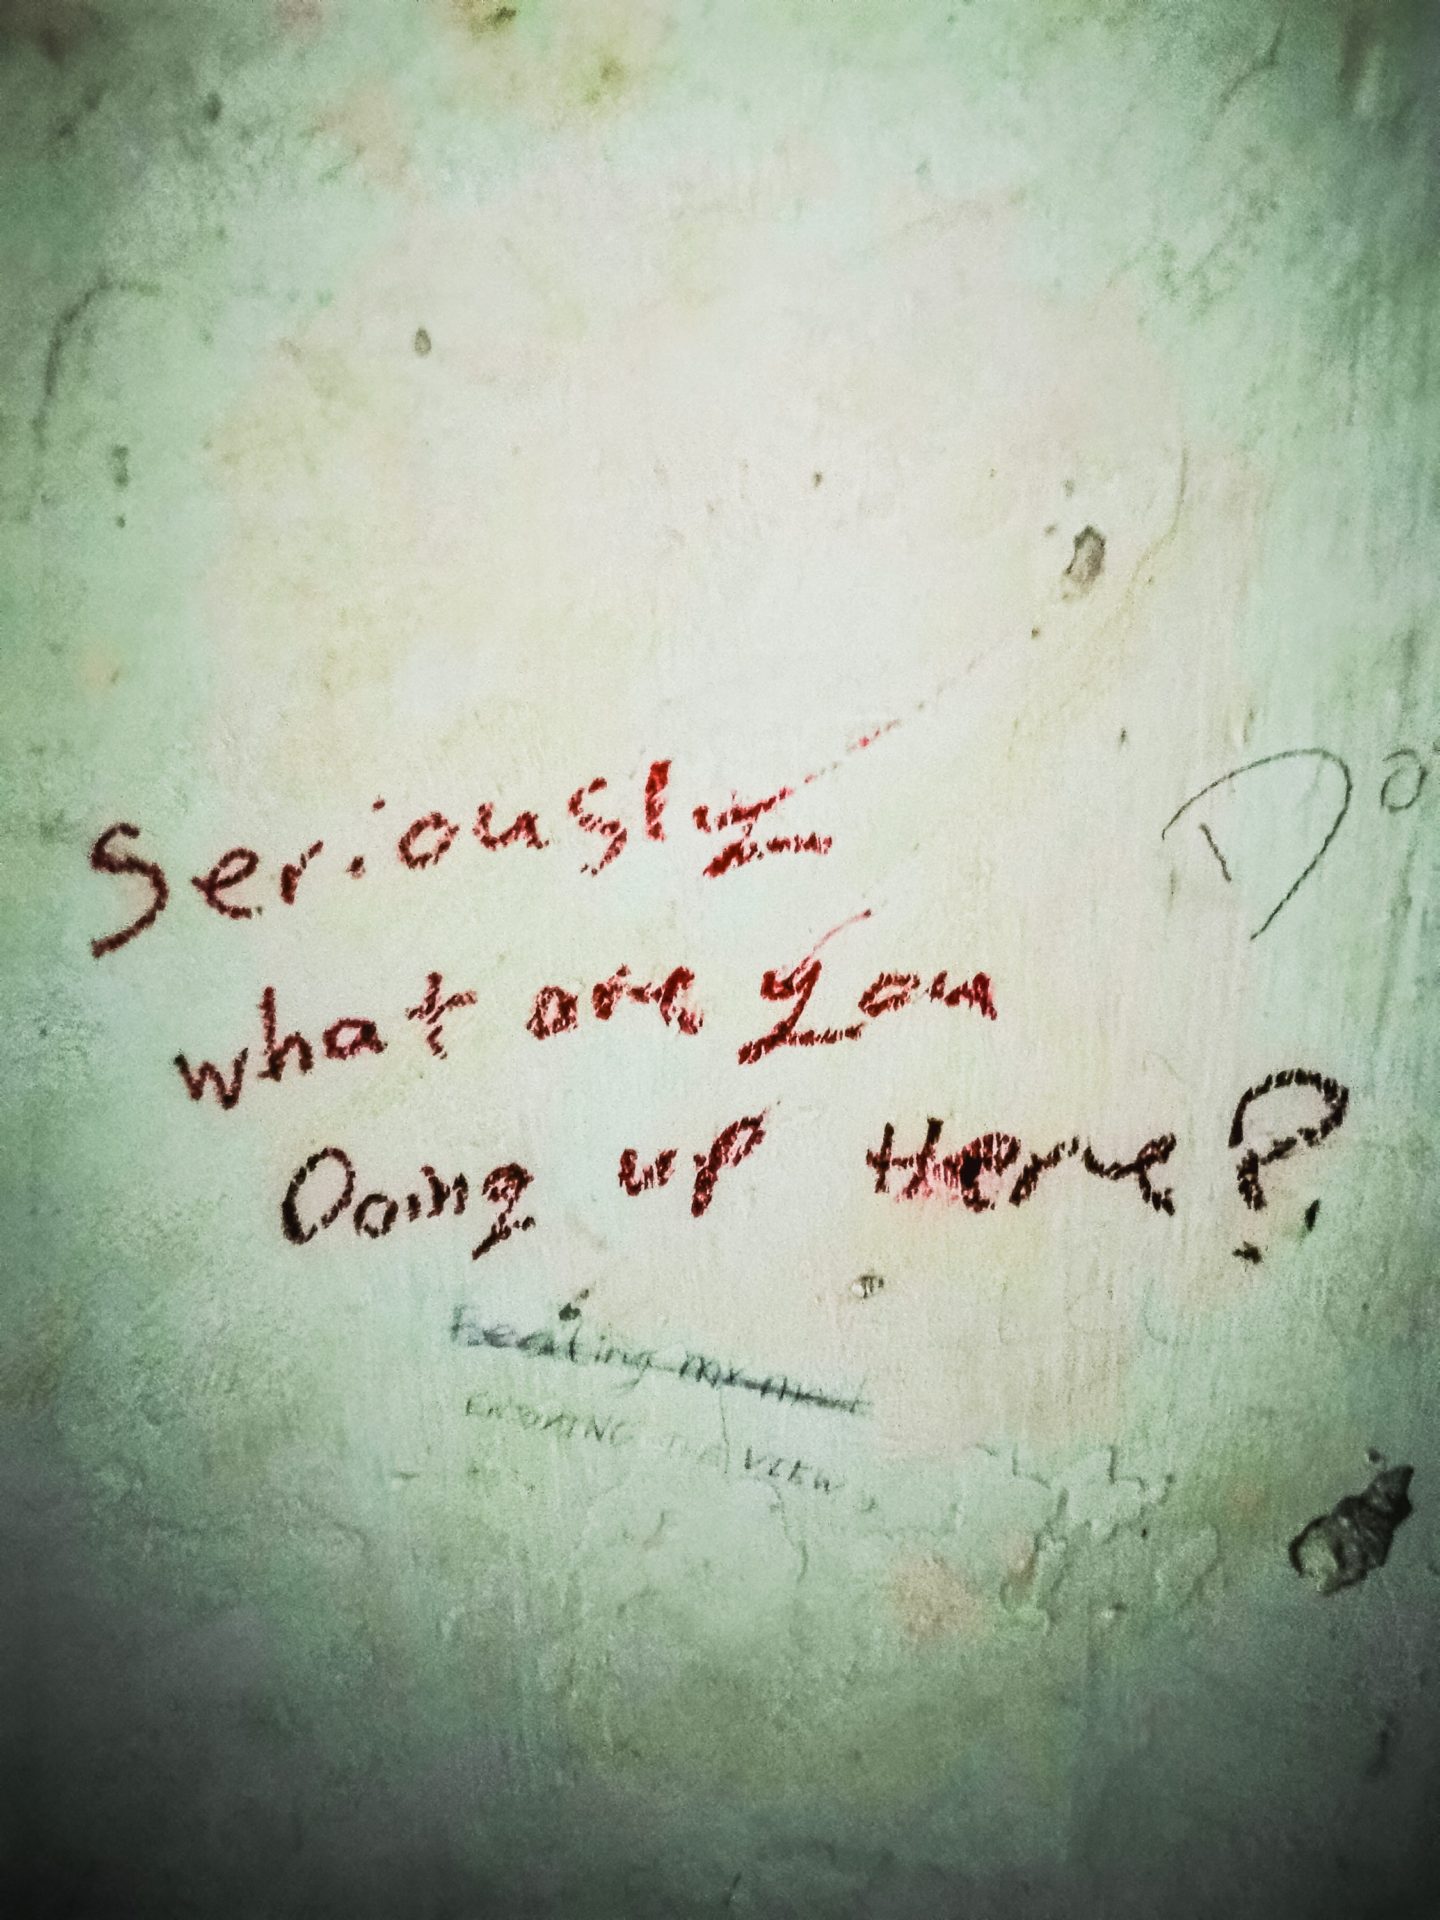 Seriously
what are you
Doing up Here?
Do
Beating my meat
ENJOYING THE VIEW